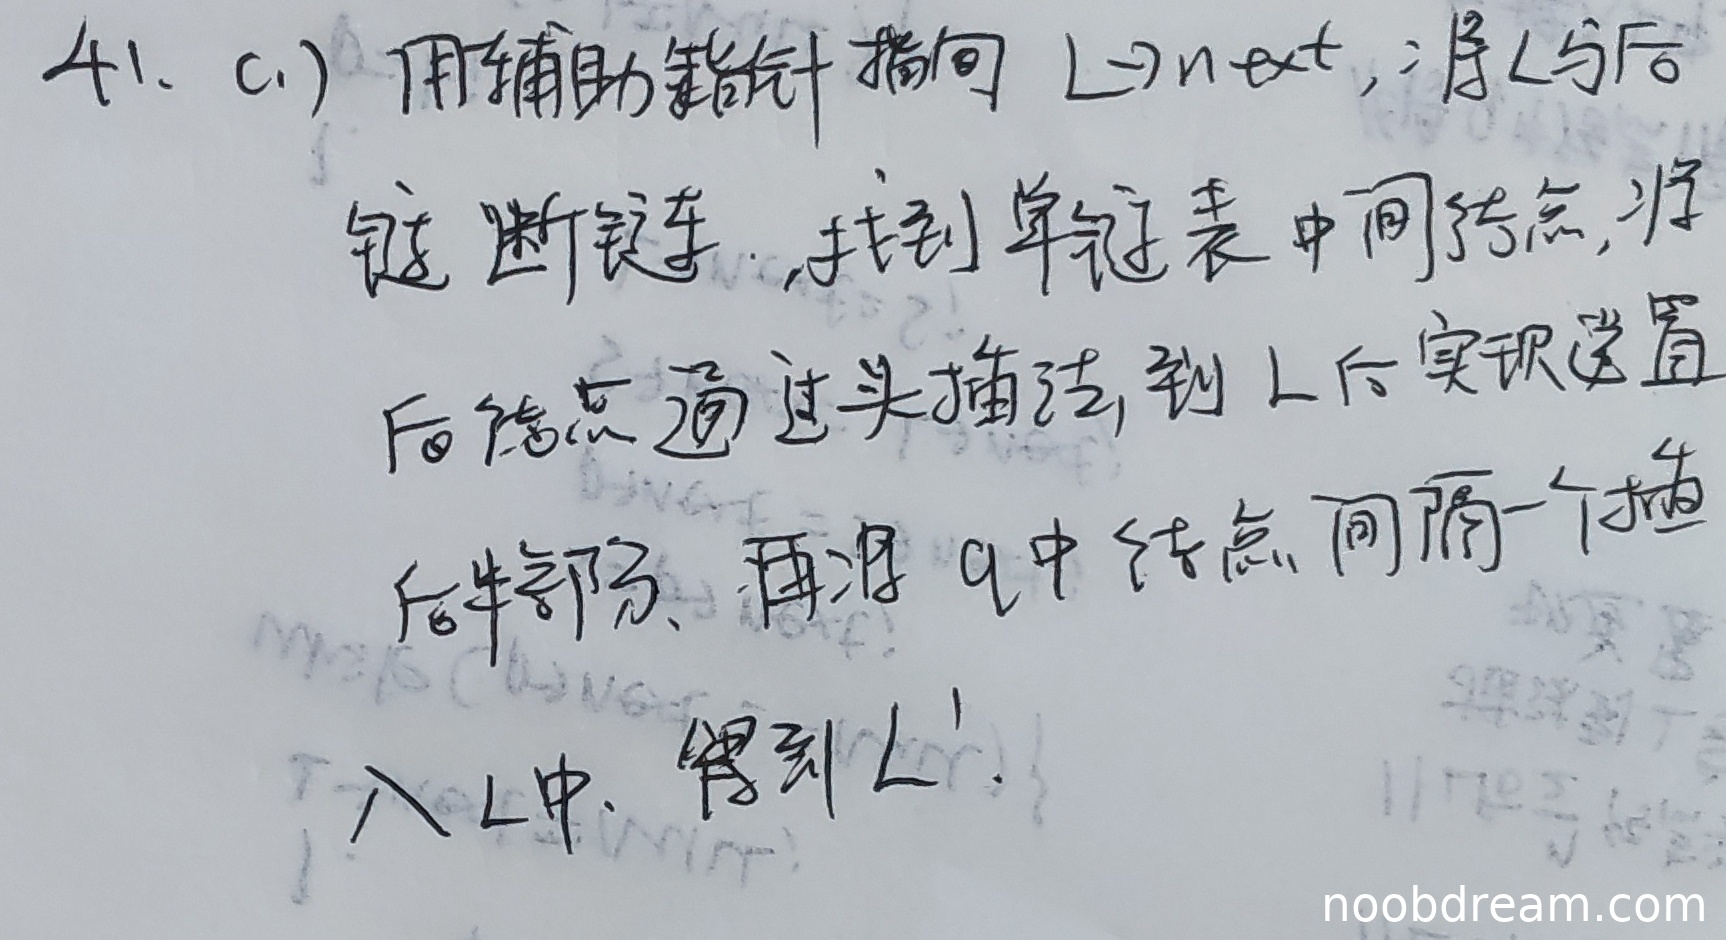 41. (1) 用辅助指针指向 L->next, 将L与后
链断链, 找到单链表中间结点, 将
后结点通过头插法, 到L后实现逆置
后半部分、再将q中结点间隔一个插
入L中、得到L'.
noobdream.com